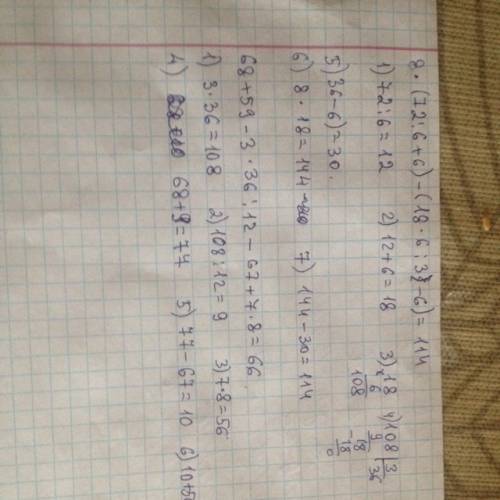 8·(72:6+6)-(18·6:3-6)=114
1) 72:6=12 2) 12+6=18 3) 18 4) 108 | 3
× 6 9 36
108 18
-18
0
5) 36-6)=30.
6) 8·18=144 7) 144-30=114
68+59-3·36:12-67+7·8=66.
1) 3·36=108 2) 108:12=9 3) 7·8=56
4) 68+9=77 5) 77-67=10 6) 10+5